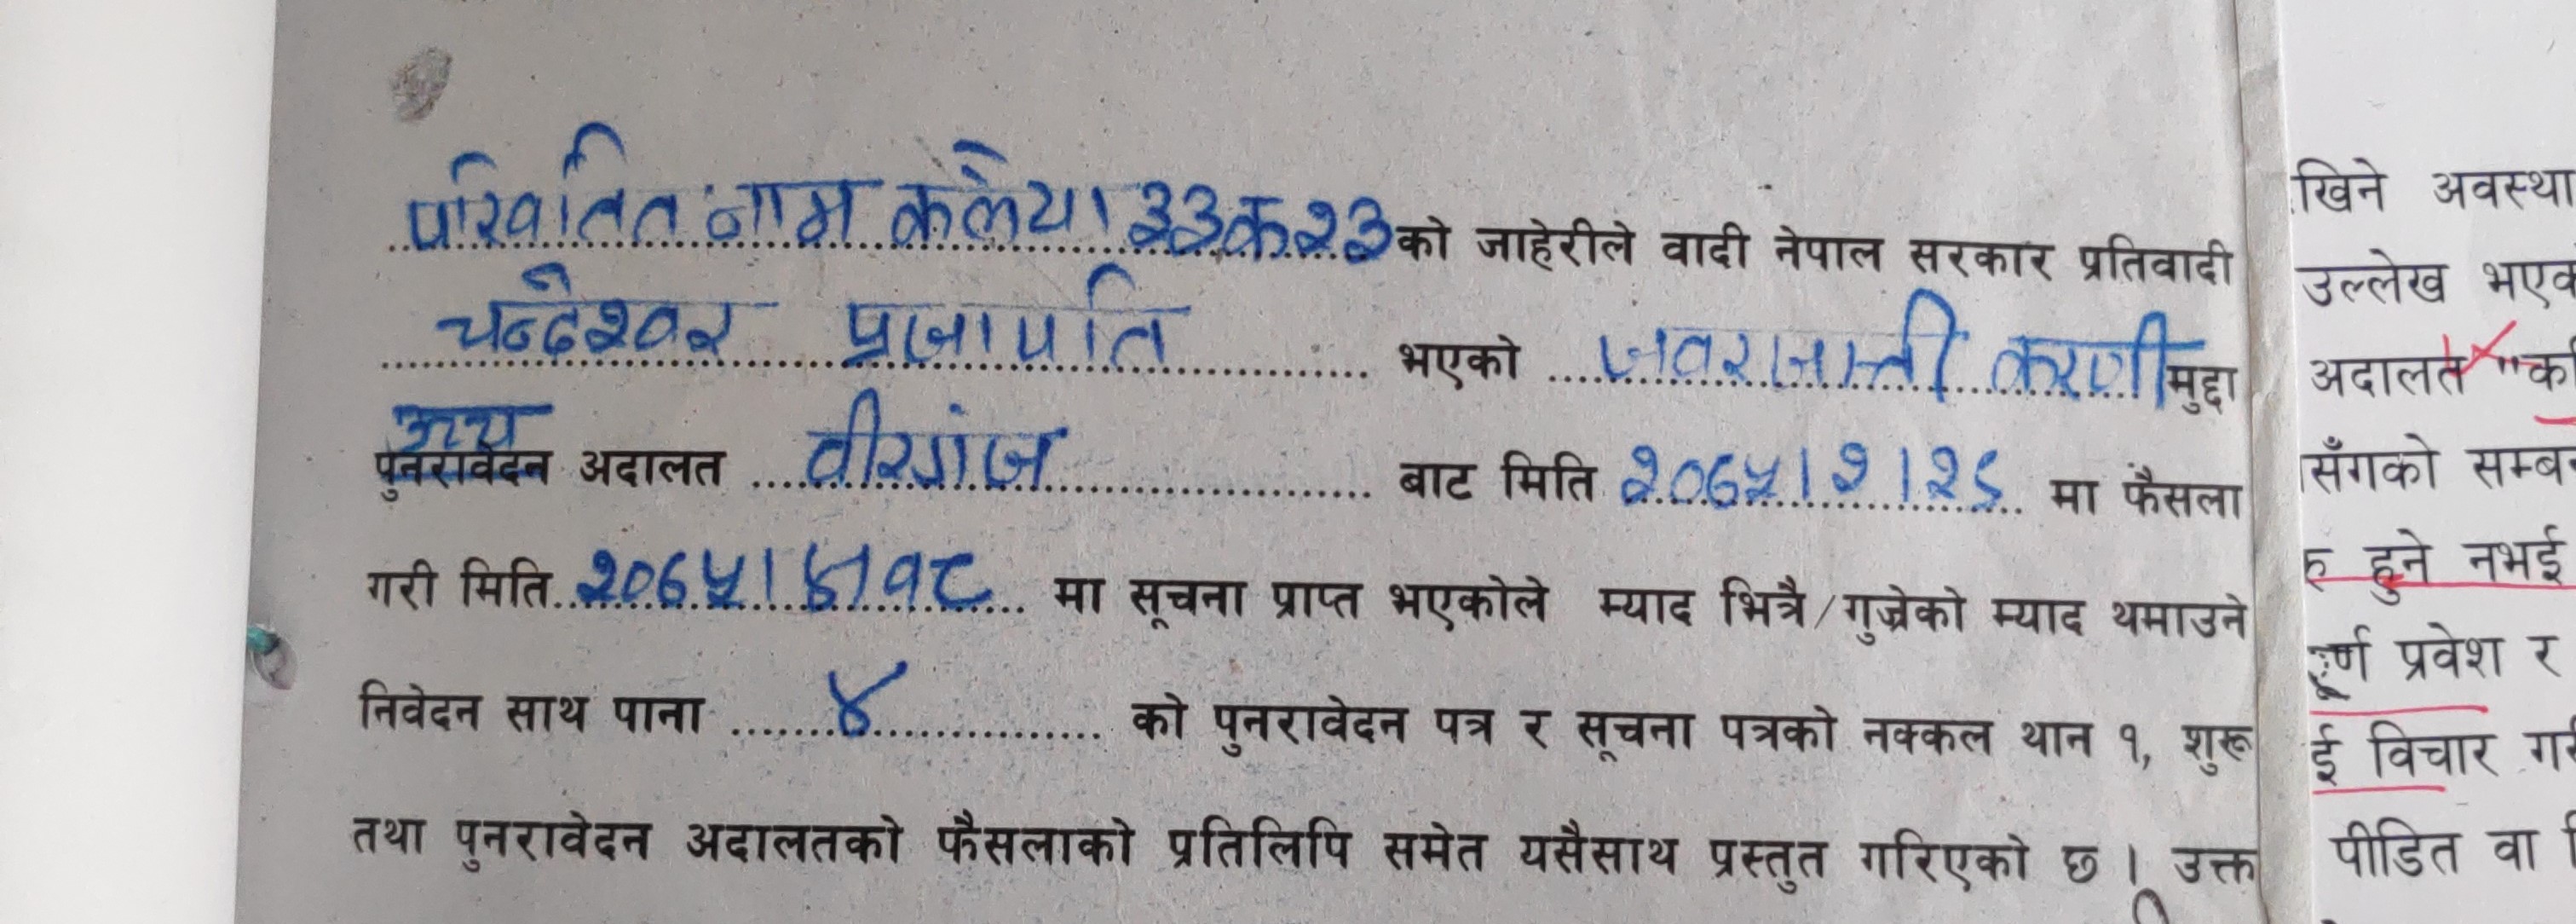 परिवर्तित नाम कलैया ३३क२३ को जाहेरीले वादी नेपाल सरकार प्रतिवादी
चन्देश्वर प्रजापति भएको जवरजास्ती करणी मुद्दा
उच्च
पुनरावेदन अदालत वीरगंज बाट मिति २०७५।२।२९ मा फैसला
गरी मिति २०७५।५।१८ मा सूचना प्राप्त भएकोले म्याद भित्रै/गुज्रेको म्याद थमाउने
निवेदन साथ पाना ४ को पुनरावेदन पत्र र सूचना पत्रको नक्कल थान १, शुरू
तथा पुनरावेदन अदालतको फैसलाको प्रतिलिपि समेत यसैसाथ प्रस्तुत गरिएको छ । उक्त
खिने अवस्था
उल्लेख भएक
अदालत "क
सँगको सम्बन
रु हुने नभई
र्ण प्रवेश र
ई विचार गर
पीडित वा